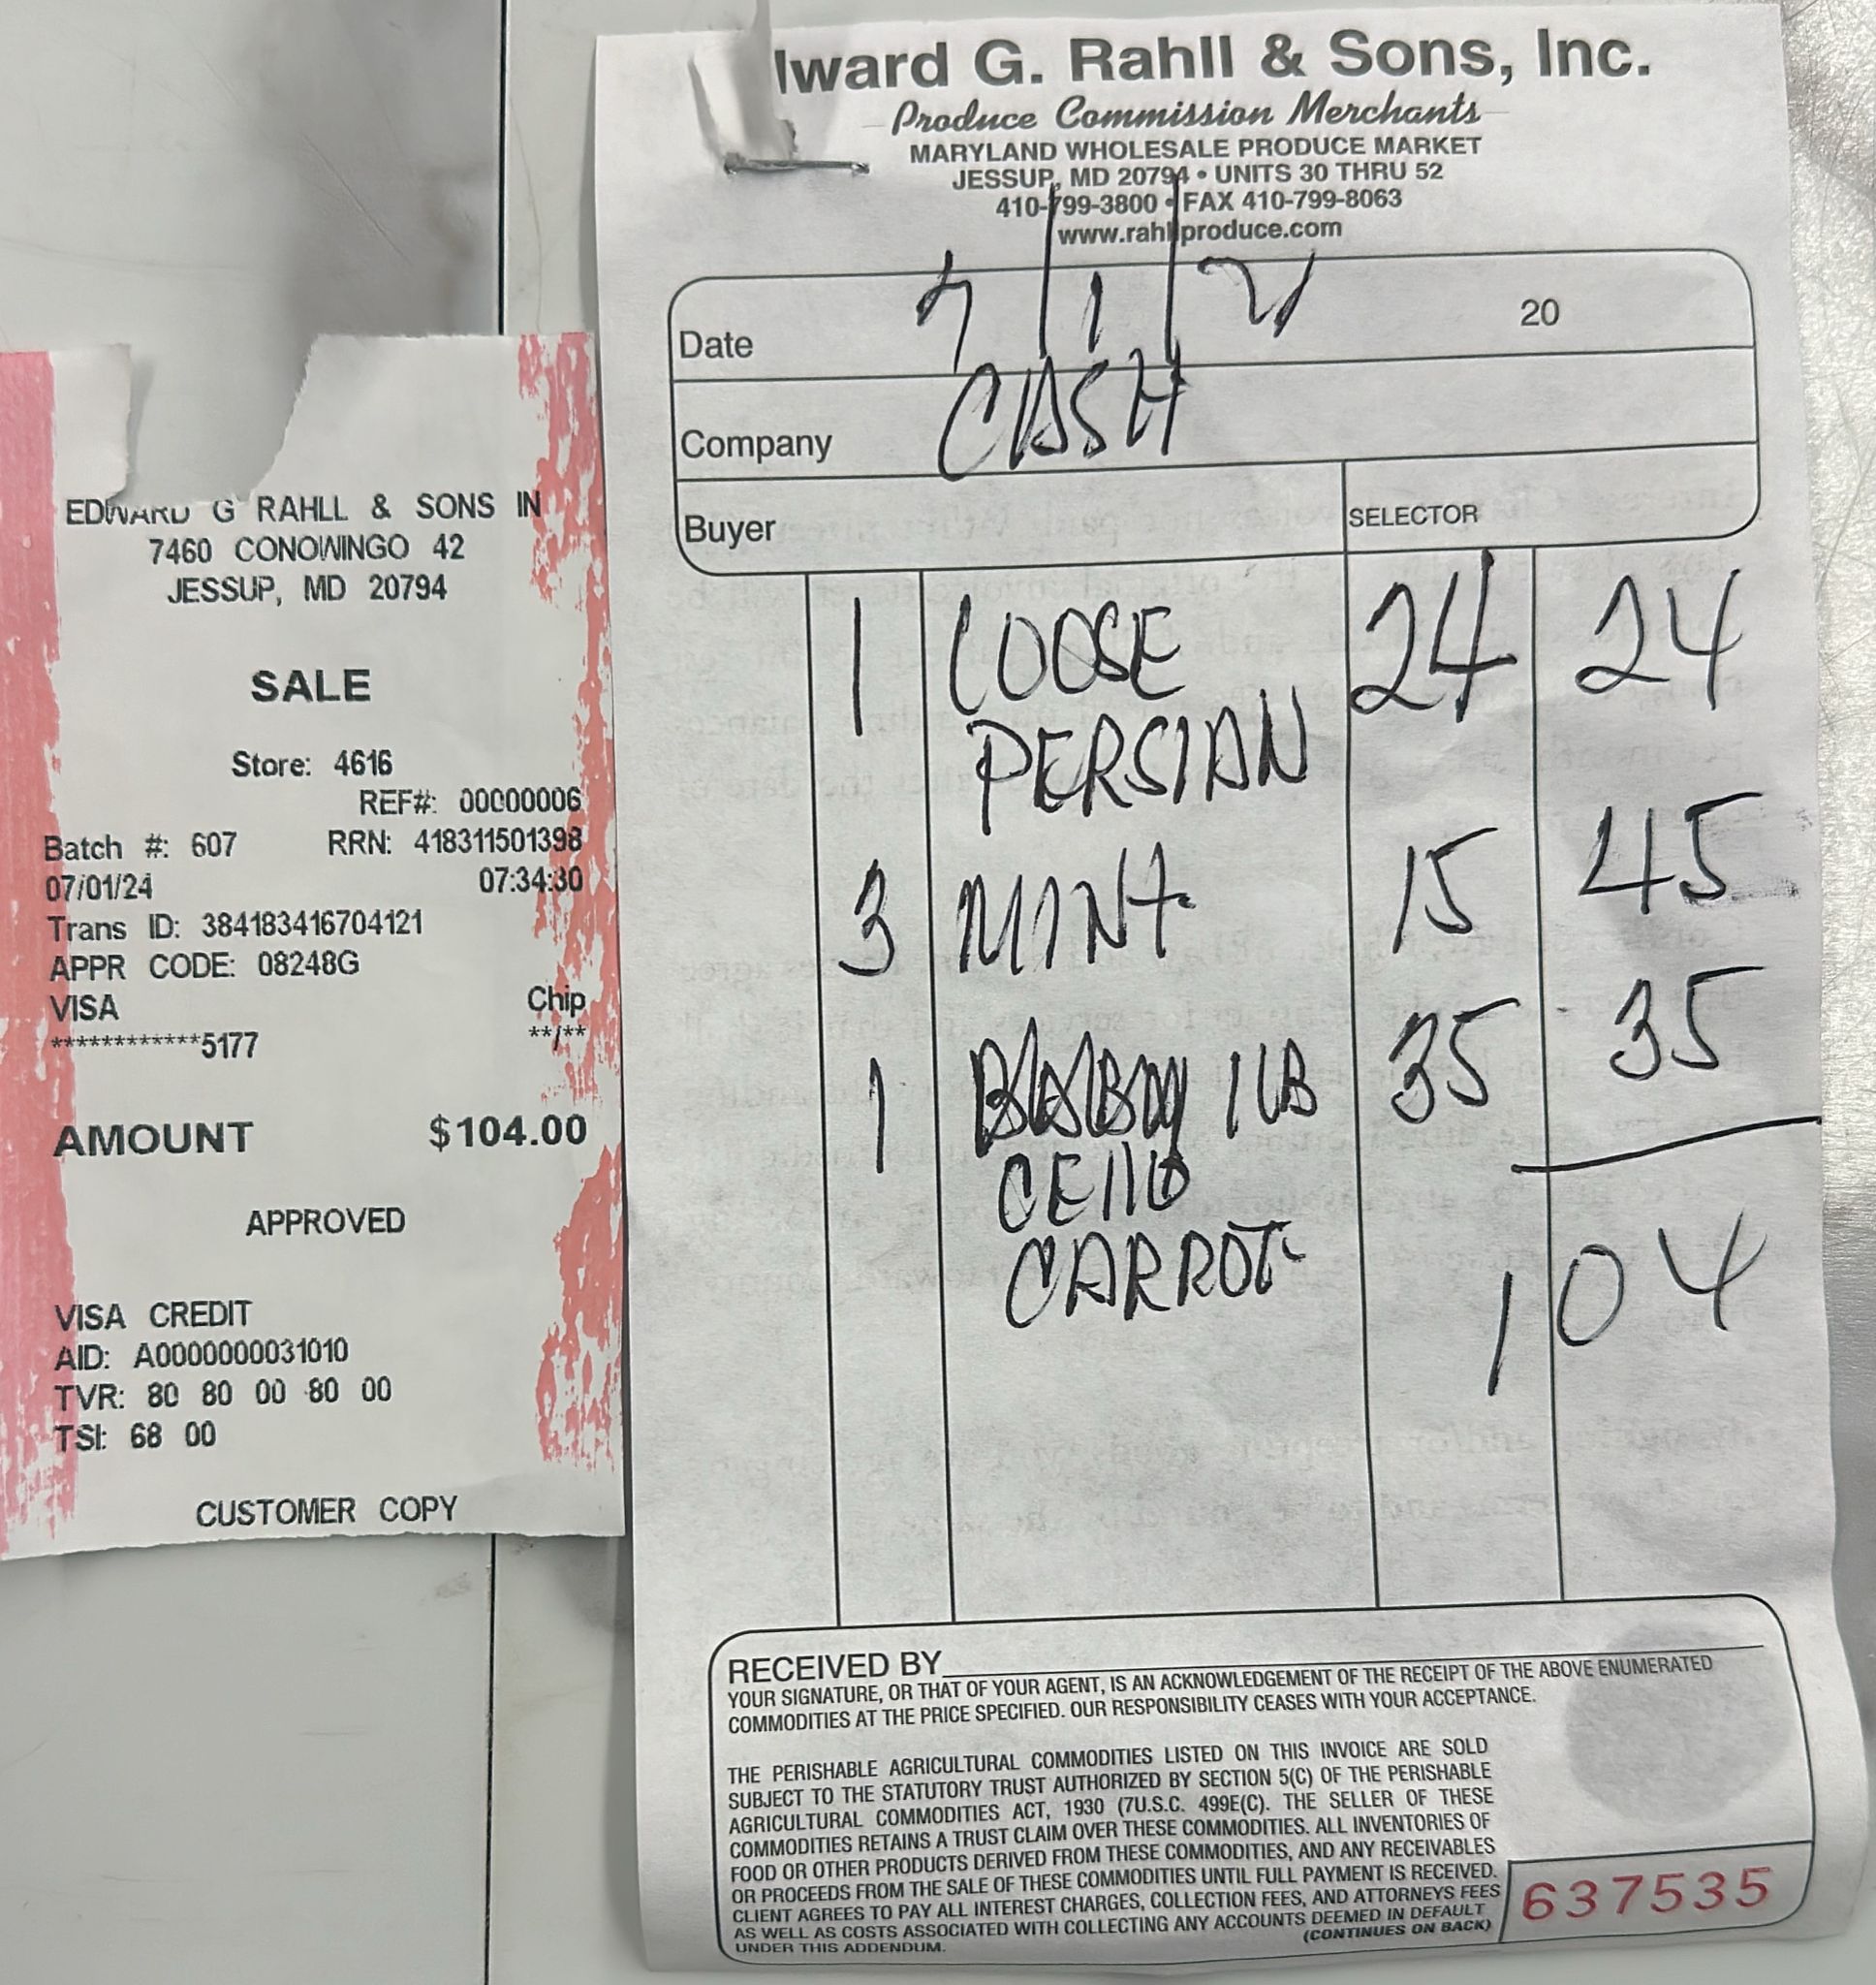 EDWARD G RAHLL & SONS IN
7460 CONOWINGO 42
JESSUP, MD 20794
SALE
Store: 4616
REF#: 00000006
Batch #: 607 RRN: 418311501398
07/01/24 07:34:30
Trans ID: 384183416704121
APPR CODE: 08248G
VISA Chip
************5177 **/**
AMOUNT $104.00
APPROVED
VISA CREDIT
AID: A0000000031010
TVR: 80 80 00 80 00
TSI: 68 00
CUSTOMER COPY
lward G. Rahll & Sons, Inc.
Produce Commission Merchants
MARYLAND WHOLESALE PRODUCE MARKET
JESSUP, MD 20794 • UNITS 30 THRU 52
410-799-3800 • FAX 410-799-8063
www.rahllproduce.com
Date 7/1/ 20
Company CASH
Buyer SELECTOR
1 LOOSE 24 24
PERSIAN
3 MINT 15 45
1 1LB 35 35
CEllO
CARROT
104
RECEIVED BY
YOUR SIGNATURE, OR THAT OF YOUR AGENT, IS AN ACKNOWLEDGEMENT OF THE RECEIPT OF THE ABOVE ENUMERATED
COMMODITIES AT THE PRICE SPECIFIED. OUR RESPONSIBILITY CEASES WITH YOUR ACCEPTANCE.
THE PERISHABLE AGRICULTURAL COMMODITIES LISTED ON THIS INVOICE ARE SOLD
SUBJECT TO THE STATUTORY TRUST AUTHORIZED BY SECTION 5(C) OF THE PERISHABLE
AGRICULTURAL COMMODITIES ACT, 1930 (7U.S.C. 499E(C). THE SELLER OF THESE
COMMODITIES RETAINS A TRUST CLAIM OVER THESE COMMODITIES. ALL INVENTORIES OF
FOOD OR OTHER PRODUCTS DERIVED FROM THESE COMMODITIES, AND ANY RECEIVABLES
OR PROCEEDS FROM THE SALE OF THESE COMMODITIES UNTIL FULL PAYMENT IS RECEIVED.
CLIENT AGREES TO PAY ALL INTEREST CHARGES, COLLECTION FEES, AND ATTORNEYS FEES
AS WELL AS COSTS ASSOCIATED WITH COLLECTING ANY ACCOUNTS DEEMED IN DEFAULT
UNDER THIS ADDENDUM. (CONTINUES ON BACK)
637535